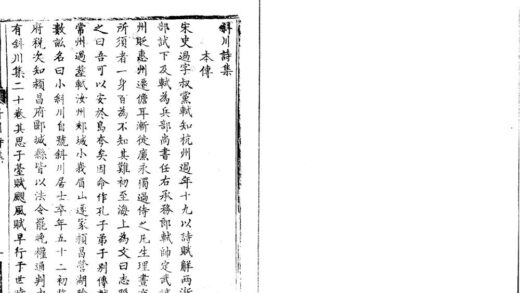 斜川詩集
本傳
宋史過字叔黨軾知杭州過年十九以詩賦解兩浙
部試下及軾為兵部尚書任右承務郎軾帥定武
州貶惠州遷儋耳漸徙廉永獨過侍之凡生理晝
所須者一身百為不知其難初至海上為文曰志
之曰吾可以安於島夷矣因命作孔子弟子別傳
常州過葬軾汝州郟城小峩眉山遂家頴昌營湖
數畝名曰小斜川自號斜川居士卒年五十二初
府稅次知頴昌府郾城縣皆以法令罷晚權通判
有斜川集二十卷其思子臺賦颶風賦早行于世